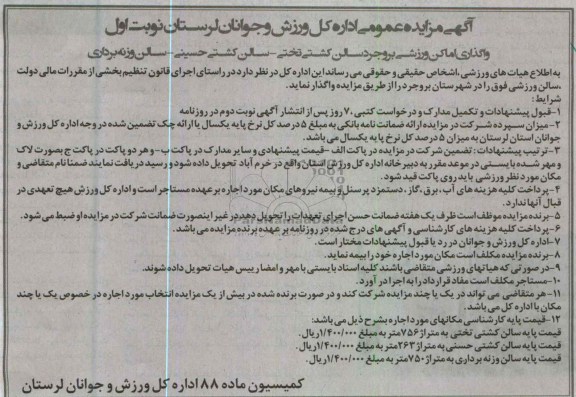 آگهی مزایده عمومی اداره کل ورزش و جوانان لرستان نوبت اول
واگذاری اماکن ورزشی بروجرد سالن کشتی تختی - سالن کشتی حسینی - سالن وزنه برداری
به اطلاع هیات های ورزشی، اشخاص حقیقی و حقوقی می رساند این اداره کل در نظر دارد در راستای اجرای قانون تنظیم بخشی از مقررات مالی دولت
، سالن ورزشی فوق را در شهرستان بروجرد را از طریق مزایده واگذار نماید.
شرایط:
۱- قبول پیشنهادات و تکمیل مدارک و درخواست کتبی، ۷ روز پس از انتشار آگهی نوبت دوم در روزنامه
۲- میزان سپرده شرکت در مزایده ارائه ضمانت نامه بانکی به مبلغ ۵ درصد کل نرخ پایه یکسال یا ارائه چک تضمین شده در وجه اداره کل ورزش و
جوانان استان لرستان به میزان ۵ درصد کل نرخ پایه یکسال می باشد.
۳- ترتیب پیشنهادات: تضمین شرکت در مزایده در پاکت الف - قیمت پیشنهادی و سایر مدارک در پاکت ب - و هر دو پاکت در پاکت ج بصورت لاک
و مهر شده بایستی در موعد مقرر به دبیرخانه اداره کل ورزش استان واقع در خرم آباد تحویل داده شود و رسید دریافت نمایند ضمنا نام متقاضی و
مکان مورد نظر ورزشی باید روی پاکت قید شود.
۴- پرداخت کلیه هزینه های آب، برق، گاز، دستمزد پرسنل و بیمه نیروهای مکان مورد اجاره بر عهده مستاجر است و اداره کل ورزش هیچ تعهدی در
قبال آنها ندارد.
۵- برنده مزایده موظف است ظرف یک هفته ضمانت حسن اجرای تعهدات را تحویل دهد در غیر اینصورت ضمانت شرکت در مزایده او ضبط می شود.
۶- پرداخت کلیه هزینه های کارشناسی و آگهی های درج شده در روزنامه بر عهده برنده مزایده می باشد.
۷- اداره کل ورزش و جوانان در رد یا قبول پیشنهادات مختار است.
۸- برنده مزایده مکلف است مکان مورد اجاره خود را بیمه نماید.
۹- در صورتی که هیاتهای ورزشی متقاضی باشند کلیه اسناد بایستی با مهر و امضا رییس هیات تحویل داده شوند.
۱۰- مستاجر مکلف است مفاد قرارداد را به اجرا در آورد.
۱۱- هر متقاضی می تواند در یک یا چند مزایده شرکت کند و در صورت برنده شده در بیش از یک مزایده انتخاب مورد اجاره در خصوص یک یا چند
مکان با اداره کل می باشد.
۱۲- قیمت پایه کارشناسی مکانهای مورد اجاره بشرح ذیل می باشد:
قیمت پایه سالن کشتی تختی به متراژ ۷۵۶ متر به مبلغ ۱/۴۰۰/۰۰۰ ریال.
قیمت پایه سالن کشتی حسنی به متراژ ۲۶۳ متر به مبلغ ۱/۴۰۰/۰۰۰ ریال.
قیمت پایه سالن وزنه برداری به متراژ ۷۵۰ متر به مبلغ ۱/۴۰۰/۰۰۰ ریال.
کمیسیون ماده ۸۸ اداره کل ورزش و جوانان لرستان